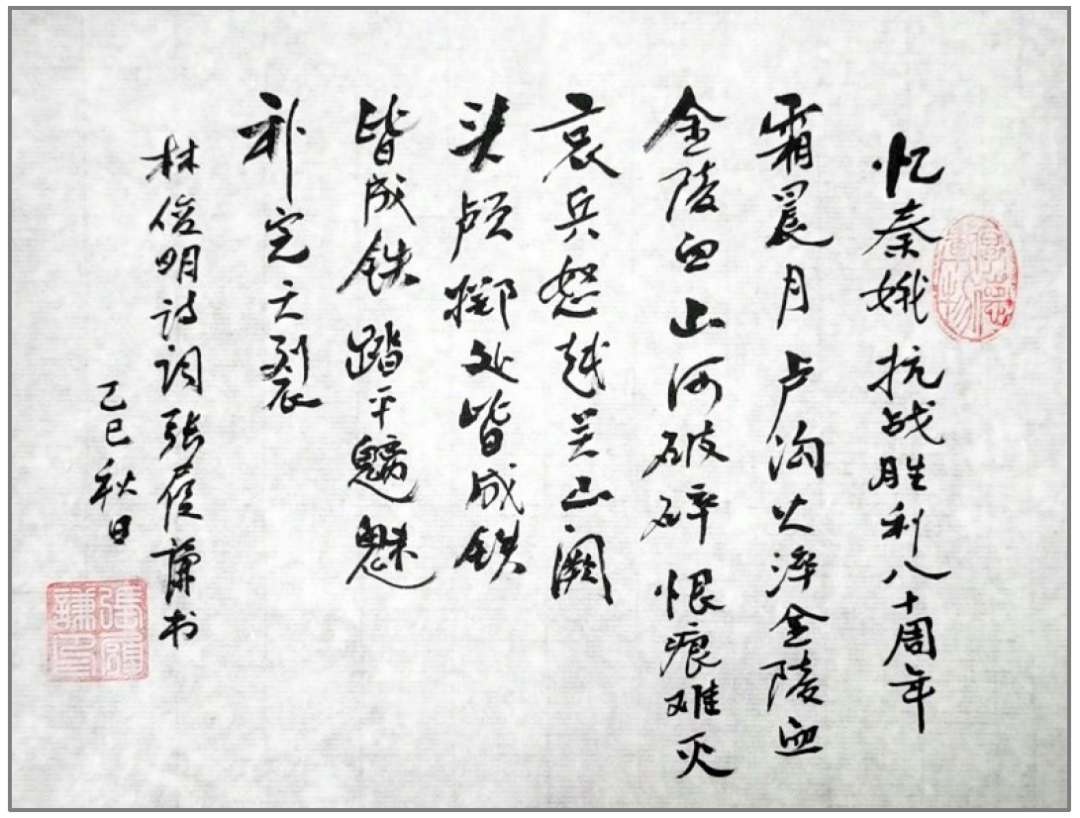 忆秦娥 抗战胜利八十周年
霜晨月 卢沟火淬金陵血
金陵血 山河破碎 恨痕难灭
哀兵怒越关山阙
头颅掷处皆成铁
皆成铁 踏平魑魅
补完天裂
林俊明诗词 張謙书
乙巳秋日
厚德載物
張謙印